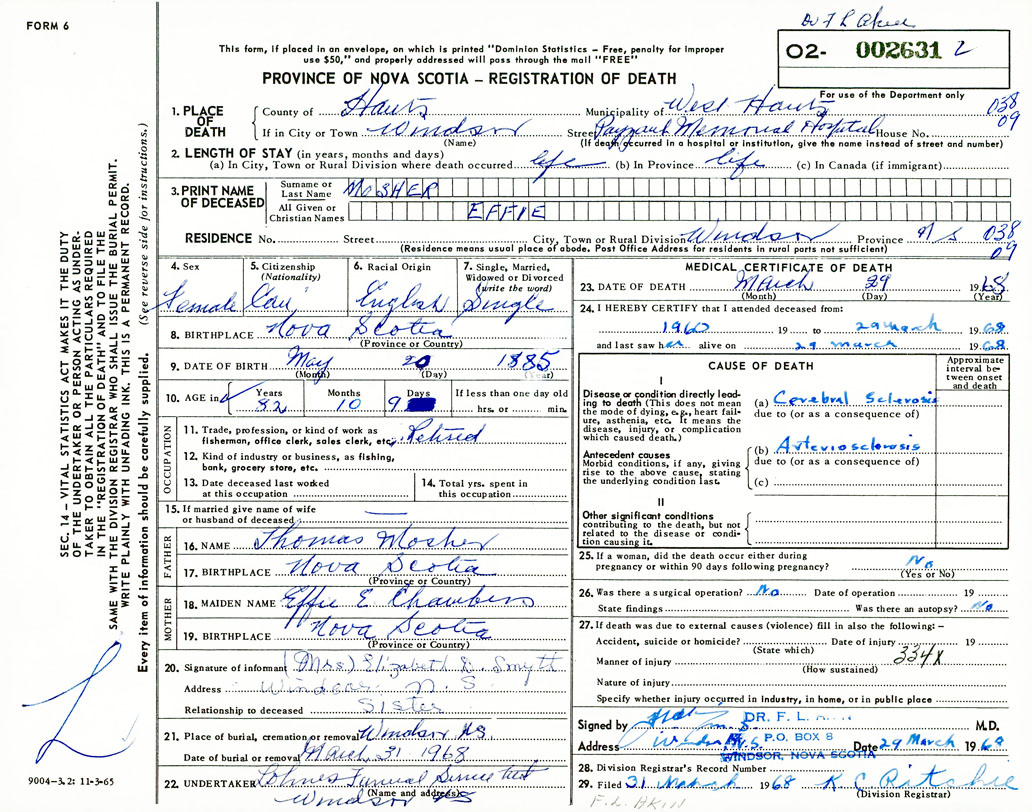 FORM 6
Dr F L Akin
This form, if placed in an envelope, on which is printed "Dominion Statistics – Free, penalty for improper
use $50," and properly addressed will pass through the mail "FREE"
O2- 002631 2
PROVINCE OF NOVA SCOTIA – REGISTRATION OF DEATH
For use of the Department only
1. PLACE OF DEATH County of Hants Municipality of West Hants 038
If in City or Town Windsor Street Payzant Memorial Hospital House No. 09
(Name) (If death occurred in a hospital or institution, give the name instead of street and number)
2. LENGTH OF STAY (in years, months and days)
(a) In City, Town or Rural Division where death occurred life (b) In Province life (c) In Canada (if immigrant)
3. PRINT NAME OF DECEASED Surname or Last Name MOSHER
All Given or Christian Names EFFIE
RESIDENCE No. Street City, Town or Rural Division Windsor Province N S 038
(Residence means usual place of abode. Post Office Address for residents in rural parts not sufficient) 09
4. Sex 5. Citizenship (Nationality) 6. Racial Origin 7. Single, Married, Widowed or Divorced (write the word)
Female Can English Single
8. BIRTHPLACE Nova Scotia
(Province or Country)
9. DATE OF BIRTH May 20 1885
(Month) (Day) (Year)
10. AGE in Years Months Days If less than one day old
82 10 9 hrs. or min.
OCCUPATION
11. Trade, profession, or kind of work as
fisherman, office clerk, sales clerk, etc. Retired
12. Kind of industry or business, as fishing,
bank, grocery store, etc.
13. Date deceased last worked
at this occupation
14. Total yrs. spent in
this occupation
15. If married give name of wife
or husband of deceased —
FATHER
16. NAME Thomas Mosher
17. BIRTHPLACE Nova Scotia
(Province or Country)
MOTHER
18. MAIDEN NAME Effie E Chambers
19. BIRTHPLACE Nova Scotia
(Province or Country)
20. Signature of informant (Mrs) Elizabeth D. Smyth
Address Windsor N.S
Relationship to deceased Sister
21. Place of burial, cremation or removal Windsor NS
Date of burial or removal March 31 1968
22. UNDERTAKER Lohnes Funeral Service
(Name and address) Windsor NS
MEDICAL CERTIFICATE OF DEATH
23. DATE OF DEATH March 29 1968
(Month) (Day) (Year)
24. I HEREBY CERTIFY that I attended deceased from:
1960 19 to 29 March 1968
and last saw her alive on 29 March 1968
CAUSE OF DEATH
Approximate interval between onset and death
I
Disease or condition directly leading to death (This does not mean the mode of dying, e.g., heart failure, asthenia, etc. It means the disease, injury, or complication which caused death.)
(a) Cerebral Sclerosis
due to (or as a consequence of)
Antecedent causes
Morbid conditions, if any, giving rise to the above cause, stating the underlying condition last.
(b) Arteriosclerosis
due to (or as a consequence of)
(c)
II
Other significant conditions
contributing to the death, but not related to the disease or condition causing it.
25. If a woman, did the death occur either during
pregnancy or within 90 days following pregnancy? No
(Yes or No)
26. Was there a surgical operation? No Date of operation 19
State findings Was there an autopsy? No
27. If death was due to external causes (violence) fill in also the following: –
Accident, suicide or homicide? Date of injury 19
(State which) 334X
Manner of injury
(How sustained)
Nature of injury
Specify whether injury occurred in industry, in home, or in public place
Signed by DR. F. L. M.D.
P.O. BOX 8
Address Windsor N.S. Date 29 March 1968
WINDSOR, NOVA SCOTIA
28. Division Registrar's Record Number
29. Filed 31 March 1968 K C Ritchie
(Division Registrar)
F.L. AKIN
SEC. 14 – VITAL STATISTICS ACT MAKES IT THE DUTY
OF THE UNDERTAKER OR PERSON ACTING AS UNDER-
TAKER TO OBTAIN ALL THE PARTICULARS REQUIRED
IN THE "REGISTRATION OF DEATH" AND TO FILE THE
SAME WITH THE DIVISION REGISTRAR WHO SHALL ISSUE THE BURIAL PERMIT.
WRITE PLAINLY WITH UNFADING INK. THIS IS A PERMANENT RECORD.
Every item of information should be carefully supplied. (See reverse side for instructions.)
9004-3.2: 11-3-65